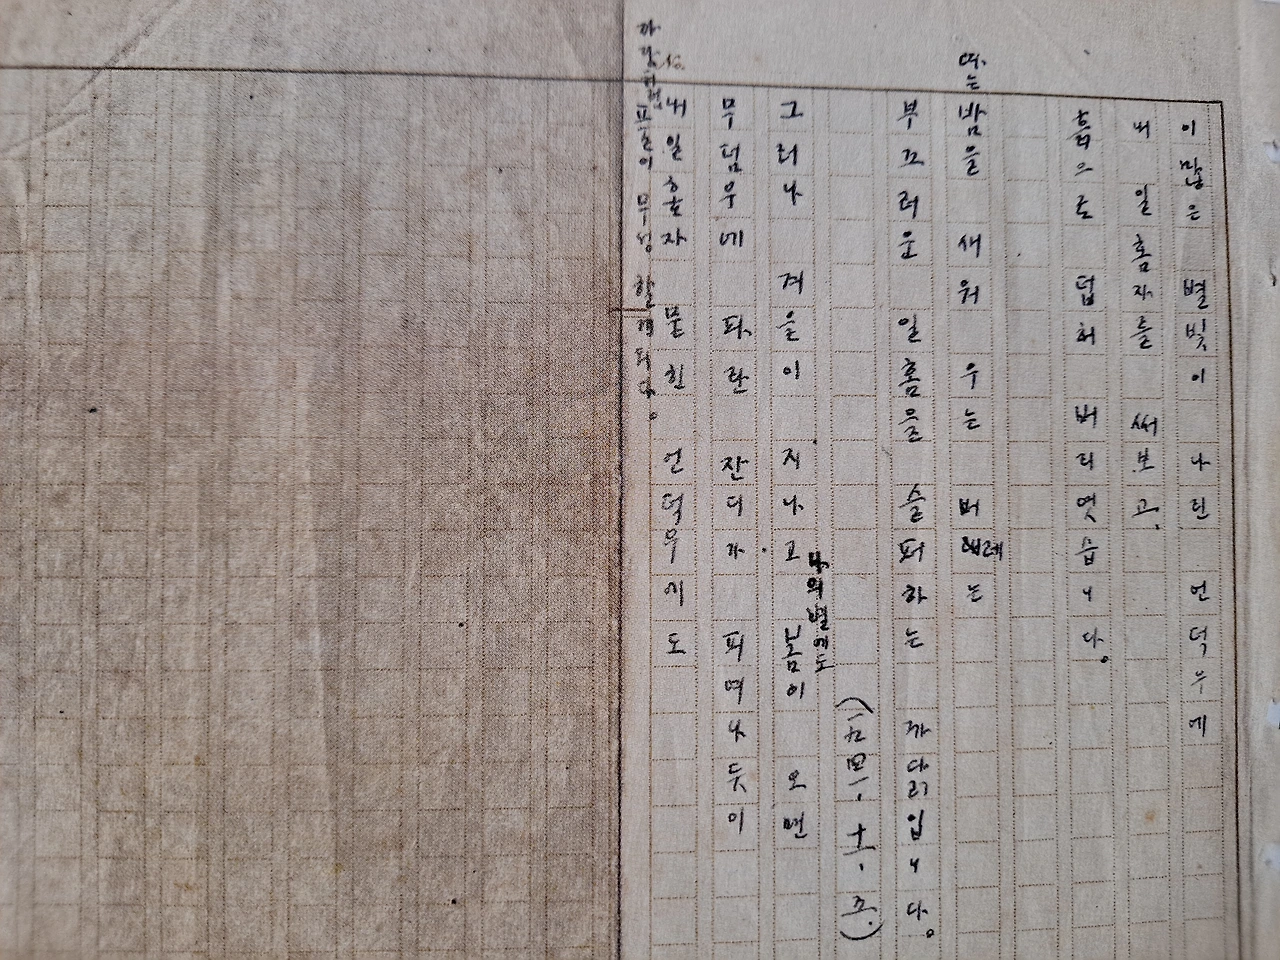 이 많은 별빛이 나린 언덕우에
내 일홈자를 써보고,
흙으로 덥허 버리엿습니다.
따는 밤을 새워 우는 버레는
부끄러운 일홈을 슬퍼하는 까닭입니다.
(一九四一、十一、五.)
그러나 겨을이 지나고 나의별에도 봄이 오면
무덤우에 파란 잔디가 피여나듯이
내일홈자 묻힌 언덕우에도
자랑처럼 풀이 무성 할게외다.